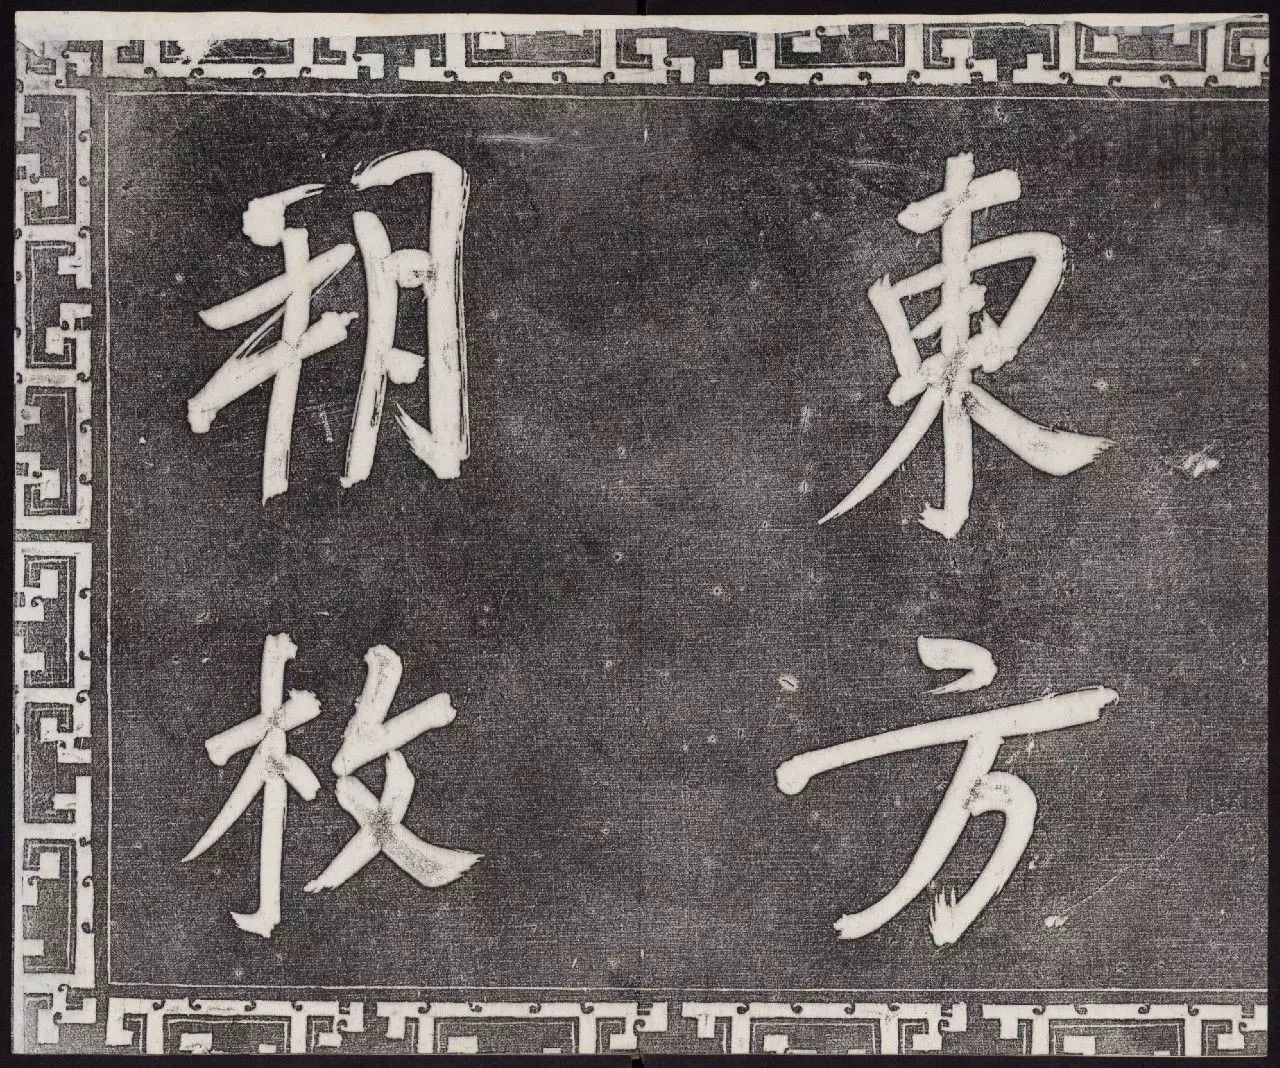 東方
朔枚